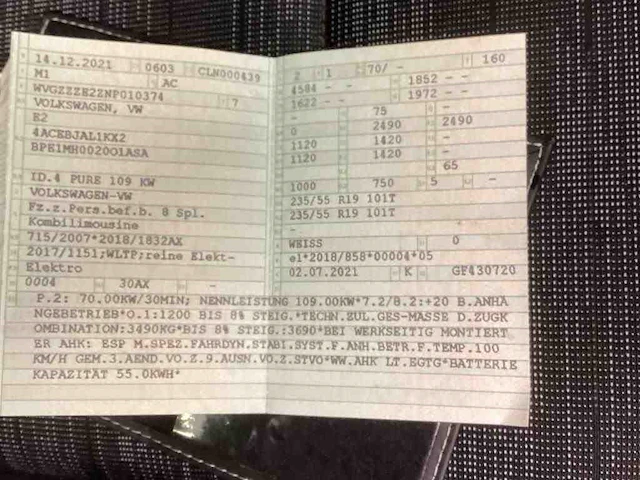 14.12.2021 0603 CLN000439
M1 AC
WVGZZZE2ZNP010374 7
VOLKSWAGEN, VW
E2
4ACEBJAL1KX2
BPE1MH002001ASA
ID.4 PURE 109 KW
VOLKSWAGEN-VW
Fz.z.Pers.bef.b. 8 Spl.
Kombilimousine
715/2007*2018/1832AX
2017/1151;WLTP;reine Elekt-
Elektro
0004 30AX -
2 1 70/ - 160
4584 - - 1852 - -
1622 - - 1972 - -
- 75 -
0 2490 2490
1120 1420 -
1120 1420 -
65
1000 750 5 -
235/55 R19 101T
235/55 R19 101T
-
WEISS 0
e1*2018/858*00004*05
02.07.2021 K GF430720
P.2: 70.00KW/30MIN; NENNLEISTUNG 109.00KW*7.2/8.2:+20 B.ANHA
NGEBETRIEB*O.1:1200 BIS 8% STEIG.*TECHN.ZUL.GES-MASSE D.ZUGK
OMBINATION:3490KG*BIS 8% STEIG.:3690*BEI WERKSEITIG MONTIERT
ER AHK: ESP M.SPEZ.FAHRDYN.STABI.SYST.F.ANH.BETR.F.TEMP.100
KM/H GEM.3.AEND.VO.Z.9.AUSN.VO.Z.STVO*WW.AHK LT.EGTG*BATTERIE
KAPAZITÄT 55.0KWH*